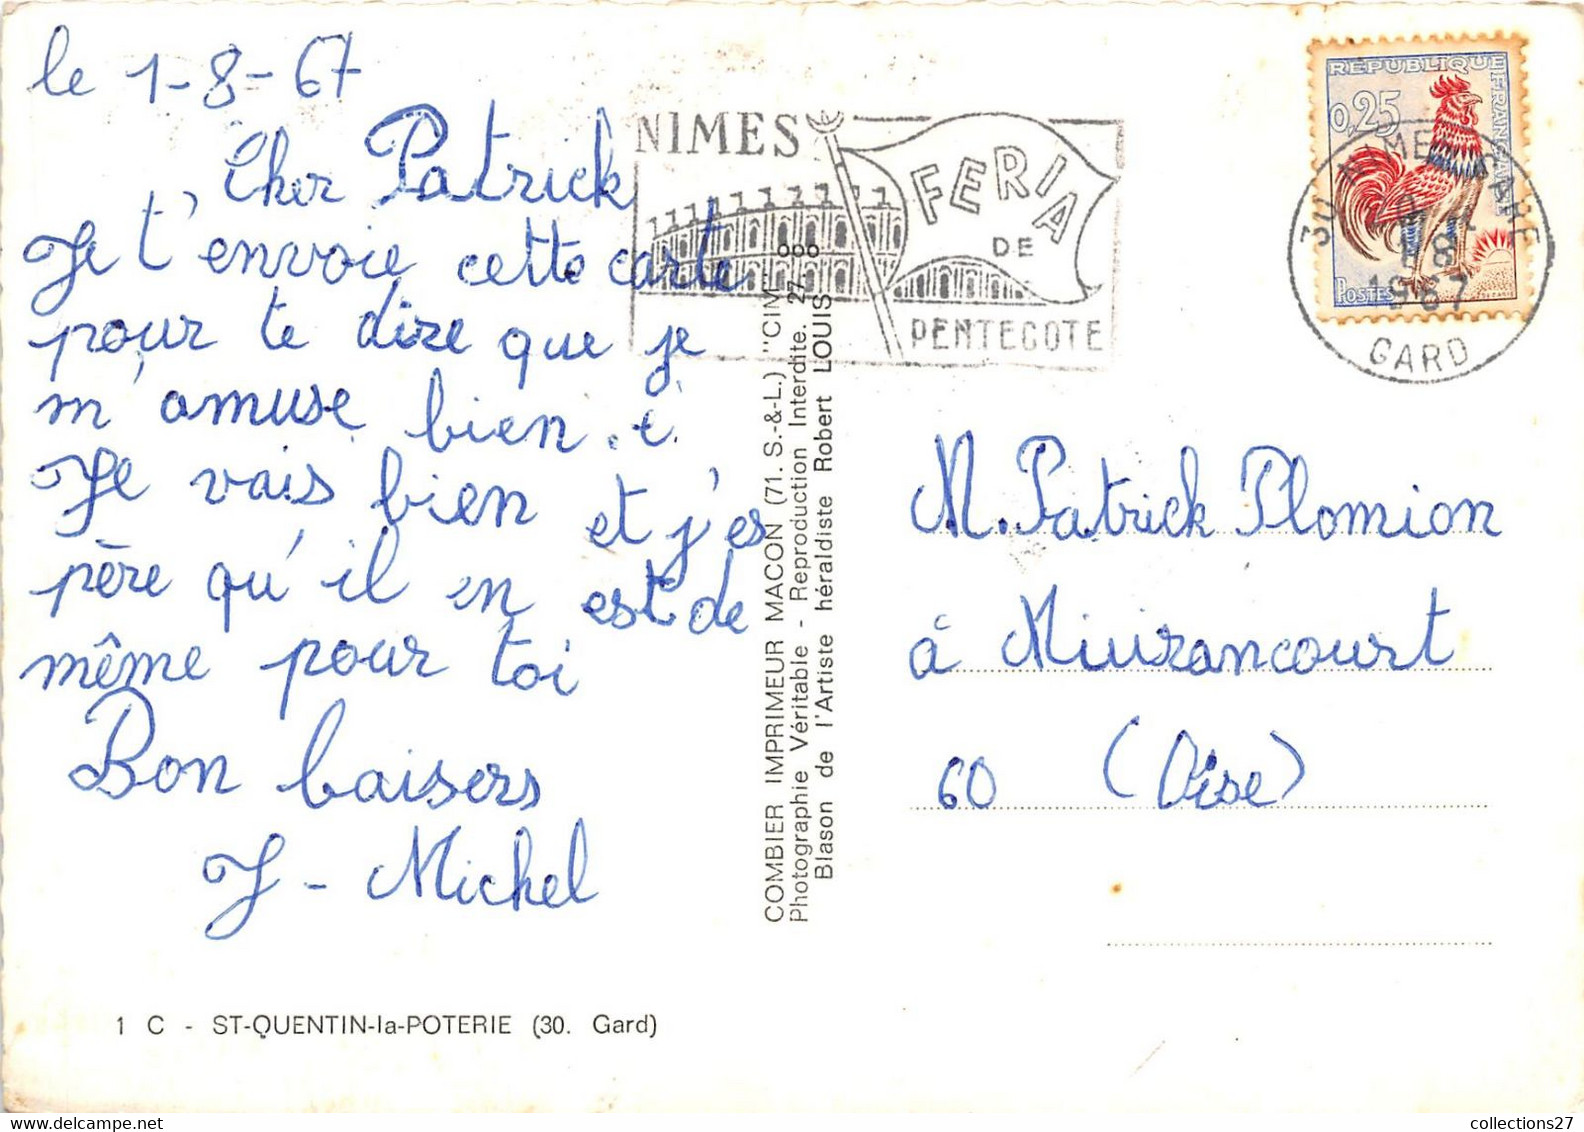 le 1-8-67
Cher Patrick
Je t'envoie cette carte
pour te dire que je
m'amuse bien.
Je vais bien et j'es
père qu'il en est de
même pour toi
Bon baisers
J-Michel
1 C - ST-QUENTIN-la-POTERIE (30. Gard)
NIMES
FERIA
DE
PENTECOTE
COMBIER IMPRIMEUR MACON (71. S.-&-L.) "CIM"
Photographie Véritable - Reproduction Interdite.
Blason de l'Artiste héraldiste Robert LOUIS
REPUBLIQUE FRANÇAISE
0,25
POSTES
30 NIMES GARE
1967
GARD
M. Patrick Plomion
à Muirancourt
60 (Oise)
collections27